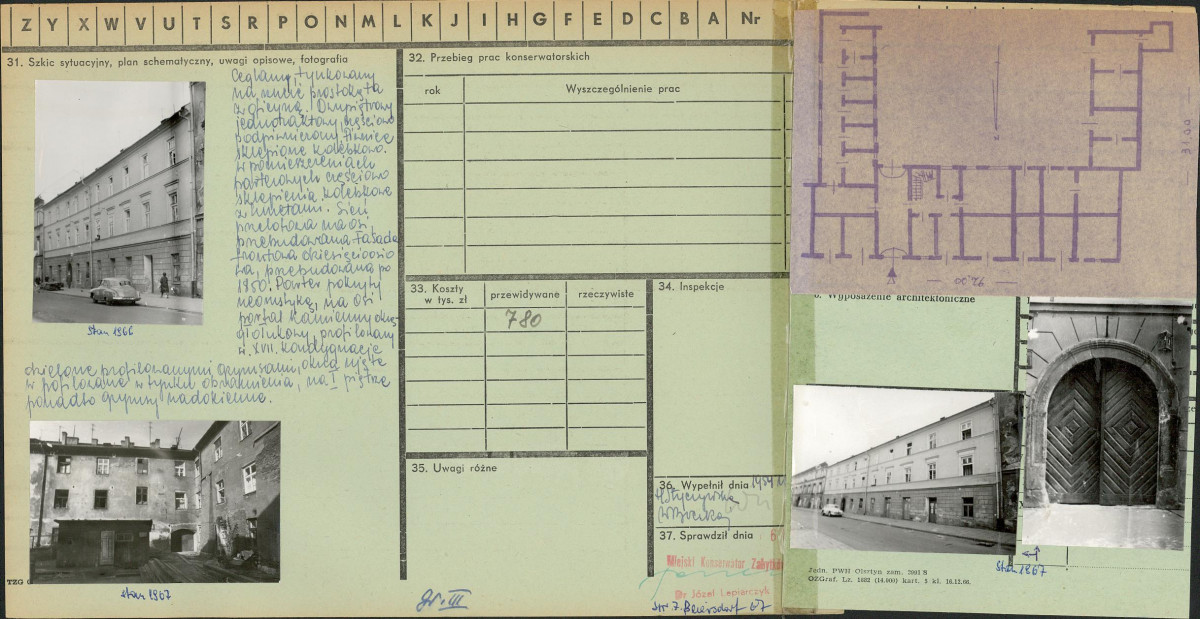 Z Y X W V U T S R P O N M L K J I H G F E D C B A Nr
31. Szkic sytuacyjny, plan schematyczny, uwagi opisowe, fotografia
Ceglany, tynkowany
na rzucie prostokąta
z oficyną. Dwupiętrowy
jednotraktowy, częściowo
podpiwniczony. Piwnice
sklepione kolebkowo.
w pomieszczeniach
parterowych częściowo
sklepienia kolebkowe
z lunetami. Sień
przelotowa na osi,
przebudowana. Fasada
frontowa dziesięcioosio
wa, przebudowana po
1850. Parter pokryty
boniotyką, na osi
portal kamienny okrą
gło łukowy, profilowany
w. XVII. Kondygnacje
dzielone profilowanymi gzymsami, okna ujęte
w profilowane w tynku obramienia, na I piętrze
ponadto gzymsy nadokienne.
stan 1966
stan 1967
TZG
32. Przebieg prac konserwatorskich
rok
Wyszczególnienie prac
33. Koszty
w tys. zł
przewidywane
rzeczywiste
780
34. Inspekcje
35. Uwagi różne
36. Wypełnił dnia
37. Sprawdził dnia
Miejski Konserwator Zabytków
Dr Józef Lepiarczyk
67
gr. III
31.00
Wyposażenie architektoniczne
Stan 1967
Zedn. PWH Olsztyn zam. 3991 S
OZGraf. Lz. 1882 (14.000) kart. 5 kl. 16.12.66.